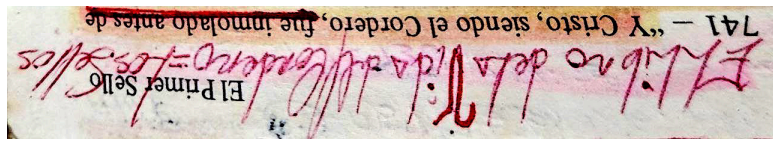 El Primer Sello
El Libro dela Vida del Cordero=Los Sellos
741 – “Y Cristo, siendo el Cordero, fue inmolado antes de